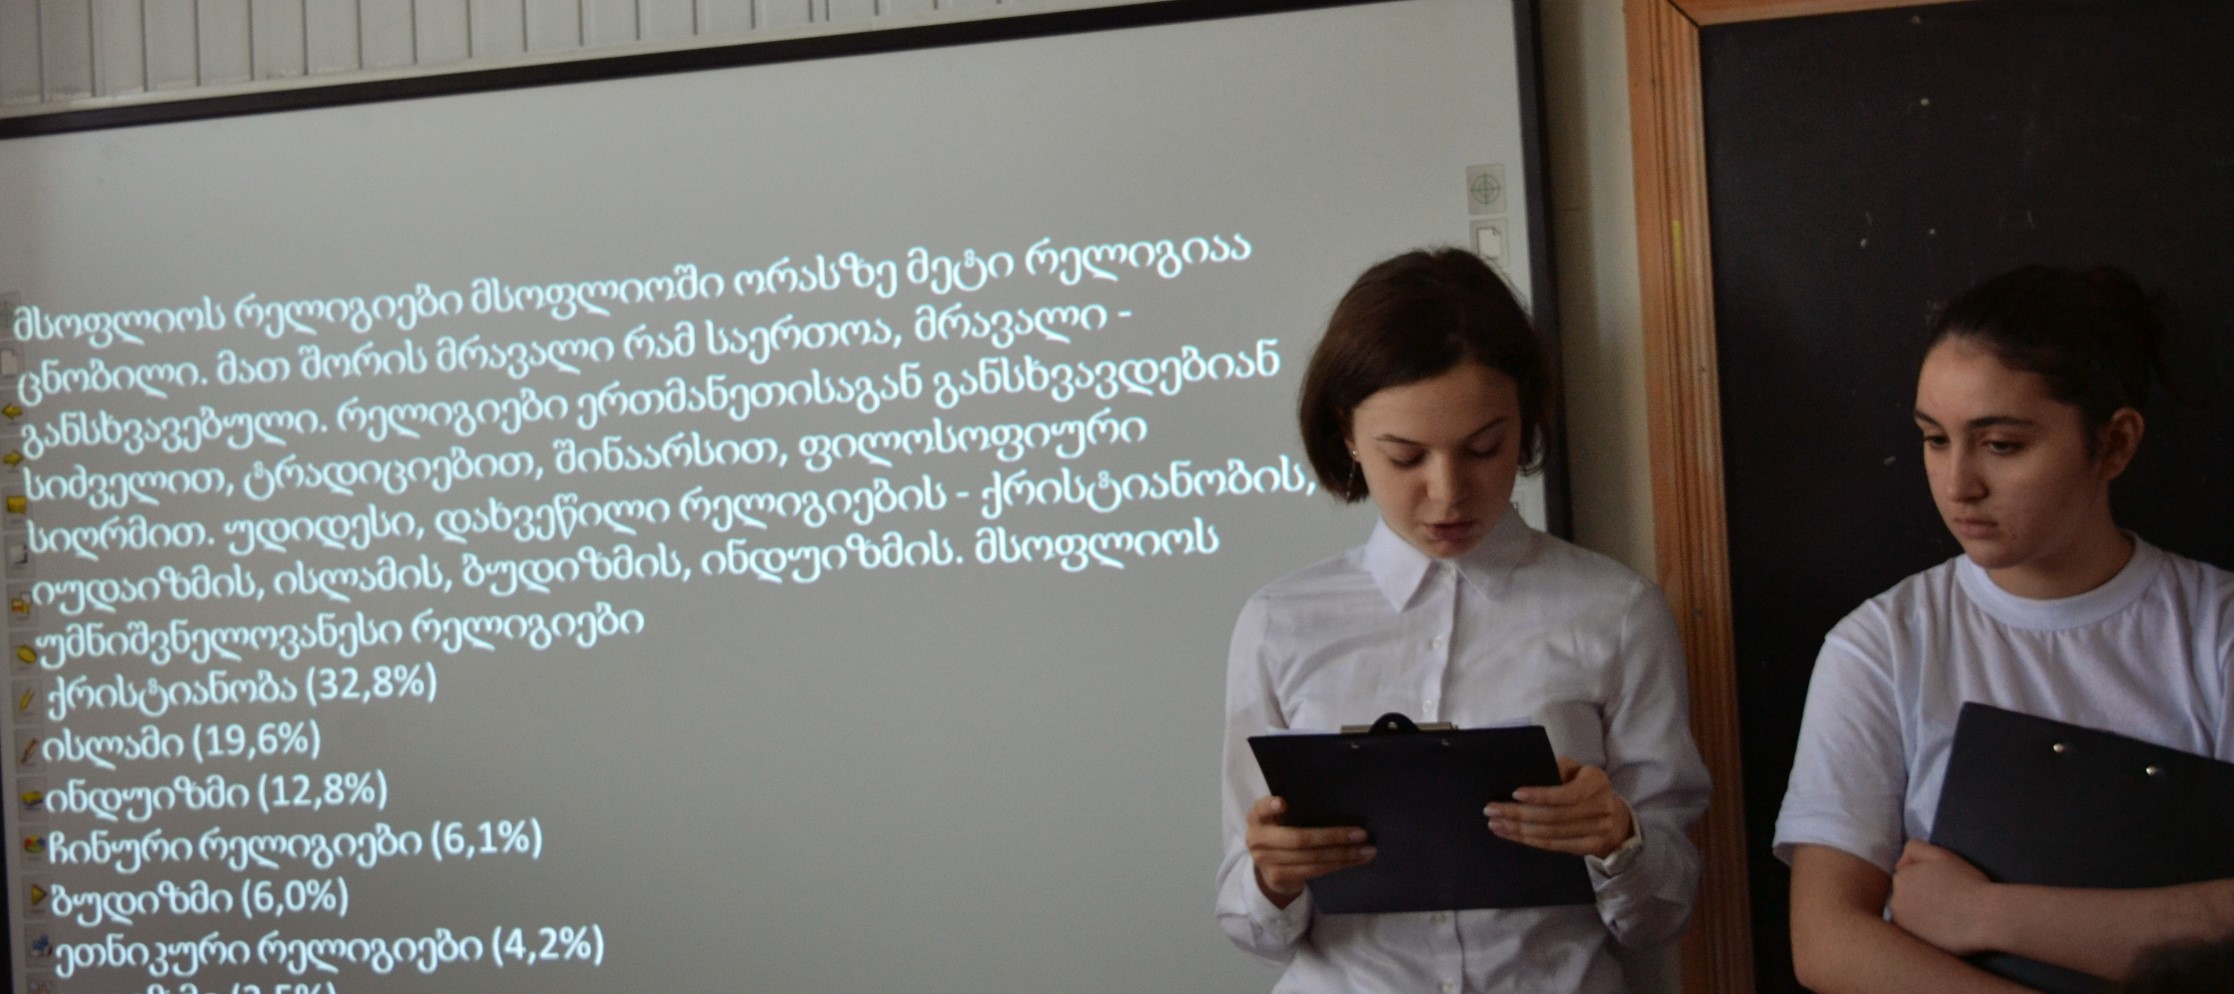 მსოფლიოს რელიგიები მსოფლიოში ორასზე მეტი რელიგიაა
ცნობილი. მათ შორის მრავალი რამ საერთოა, მრავალი -
განსხვავებული. რელიგიები ერთმანეთისაგან განსხვავდებიან
სიძველით, ტრადიციებით, შინაარსით, ფილოსოფიური
სიღრმით. უდიდესი, დახვეწილი რელიგიების - ქრისტიანობის,
იუდაიზმის, ისლამის, ბუდიზმის, ინდუიზმის. მსოფლიოს
უმნიშვნელოვანესი რელიგიები
ქრისტიანობა (32,8%)
ისლამი (19,6%)
ინდუიზმი (12,8%)
ჩინური რელიგიები (6,1%)
ბუდიზმი (6,0%)
ეთნიკური რელიგიები (4,2%)